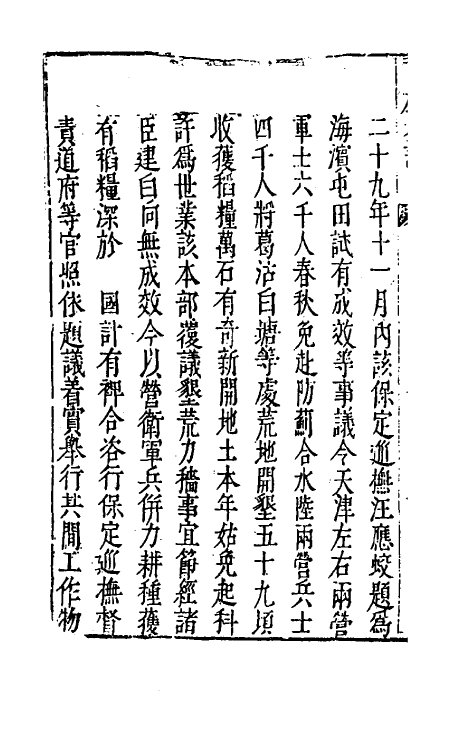 二十九年十一月內該保定巡撫汪應蛟題為
海濵屯田試有成效等事議令天津左右兩營
軍士六千人春秋免赴防薊合水陸兩營兵士
四千人將葛沽白塘等處荒地開墾五十九頃
收獲稻糧萬石有奇新開地土本年姑免起科
許為世業該本部覆議墾荒力穡事宜節經諸
臣建白何無成效今以營衛軍兵併力耕種獲
有稻糧深於　國計有裨合咨行保定巡撫督
責道府等官照依題議着實舉行其間工作物